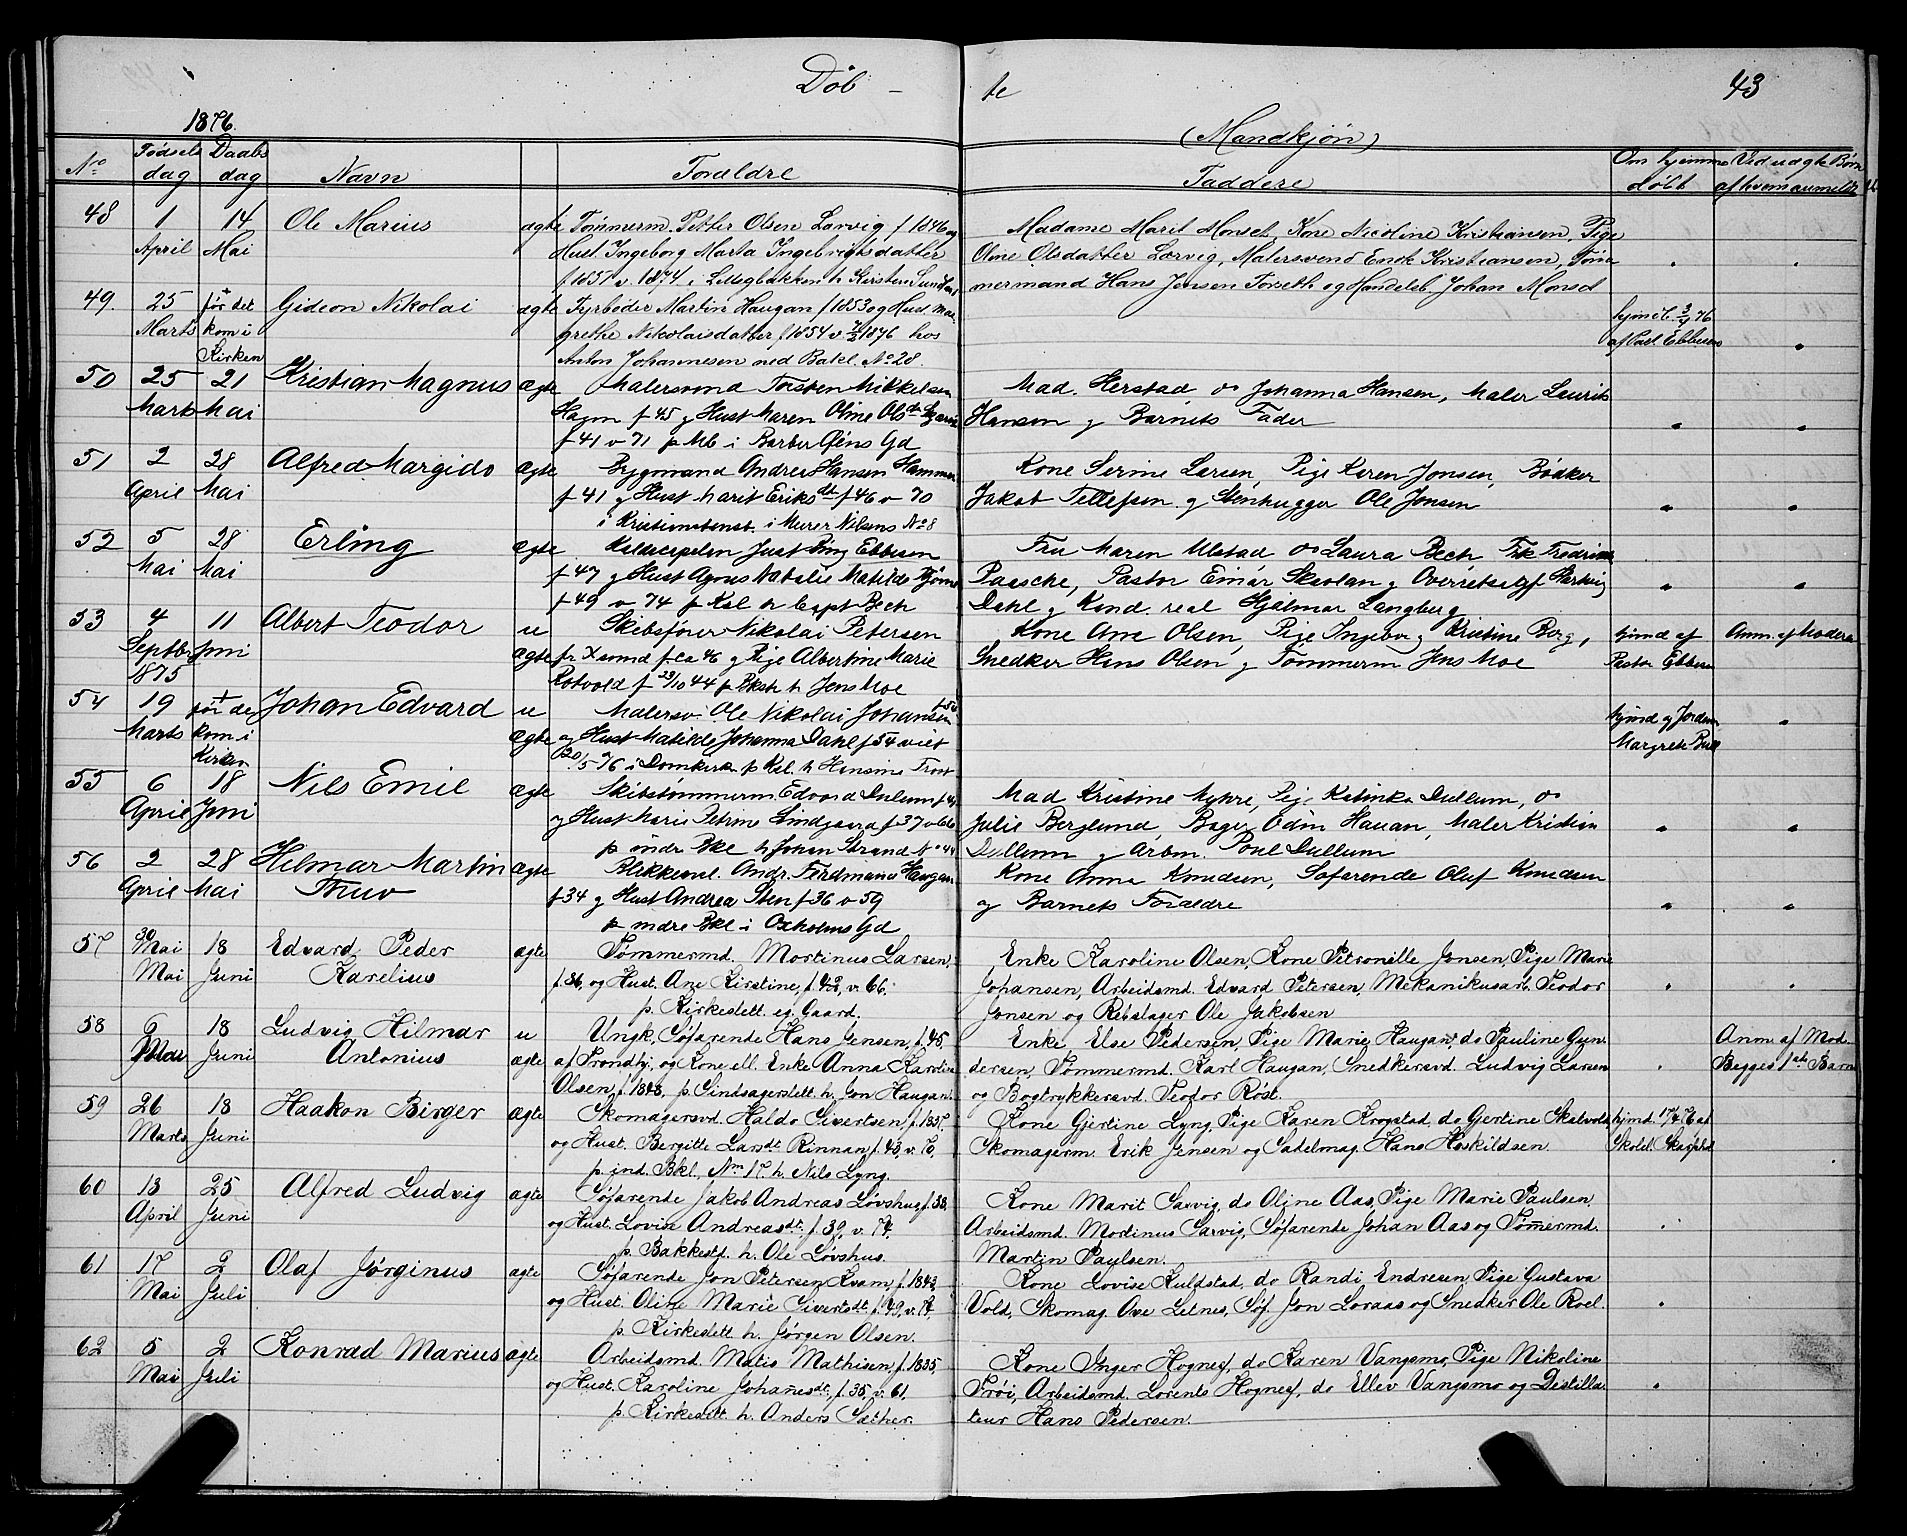 Døb – te 43
1876.
(Mandkjøn)
No Fødsels dag Daabs dag Navn Forældre Faddere Om hjemme døbt Ved uægte Børn af hvem anmeldt
48 1 April 14 Mai Ole Marius ægte Tømmerm. Petter Olsen Lorvig f 1846 og
Hust. Ingeborg Marta Ingebrigtsdatter
f 1851 v. 1874 i
Madame Marit Monset, Kone Nicoline Kristiansen, Pige
Oline Olsdatter Lorvig, Malersvend Enok Kristiansen, Tøm-
mermand Hans Jensen Forseth og Handelsb. Johan Monset
49. 25 Marts † før det kom i Kirken Gideon Nikolai ægte Fyrbøder Martin Haugan f 1853 og Hust. Mar-
grethe Nikolaisdatter f 1854 v. 1876 hos
Anton Johannesen ned Bakl. No 28.
hjmdb. 3/4 76
af Past. Ebbesen
50 25 Marts 21 Mai Kristian Magnus ægte Malersvend Torsten Mikkelsen
Hagen f 45 og Hust Maren Oline Olsdt
f 41 v 71 p Mb i Barber Gd
Mad. Herstad, do Johanna Hansen, Maler Laurits
Hansen og Barnets Fader
51 2 April 28 Mai Alfred Margido ægte Brygmand Andreas Hansen Hammer
f 41 og Hust Marit Eriksdt f 46 v 70
i Kristianstenst. i Murer Nilsens No 8
Kone Serine Larsen, Pige Karen Jonsen, Bødker
Jakob Tellefsen og Stenhugger Ole Jonsen
52 5 Mai 28 Mai Erling ægte Residcapelan Just Bing Ebbesen
f 47 og Hust Agnes Natalie Matilde
f 49 v 74 p Kal h Capt Bech
Fru Maren Ulstad do Laura Bech Frk Fredrikke
Paasche, Pastor Einar Skavlan og Overretssagf
Dahl og Kand. real Hjalmar Langberg
53 4 Septbr 1875 11 Juni Albert Teodor u ægte Skibsfører Nikolai Petersen
fr Xsund f ca 46 og Pige Albertine Marie
Rotvold f 23/10 44 p Bksh h Jens Moe
Kone Ane Olsen, Pige Ingeborg Kristine Berg,
Snedker Hans Olsen og Tømmerm Jens Moe
hjmd af
Pastor Ebbesen
Anm. af Moderen
54 19 Marts † før de kom i Kirken Johan Edvard u ægte Malersv. Ole Nikolai Johansen f 54
og Hust Matilde Johanna Dahl f 54 viet
20/5 76 i Domkirk p Kal. h Hansine Trost
hjmd af Jordem
Margrete Bull
55 6 April 18 Juni Nils Emil ægte Skibstømmerm. Edvard Dullum f
og Hust Maris Petrine Lindgaard f 37 v 66
p indr Bkl h Johan Strand No 44
Mad Kristine Myhre, Pige Katinka Dullum, do
Julie Berglund, Bager Odin Hauan, Maler Kristian
Dullum og Arbm. Poul Dullum
56 2 April 28 Mai Hilmar Martin Thuv ægte Blikkensl. Andr. Ferdinand Haugan
f 34 og Hust Andrea Sten f 36 v 59
p indre Bkl i Oxholms Gd
Kone Anna Knudsen, Søfarende Oluf Knudsen
og Barnets Forældre
57 30 Mai Mai 18 Juni Edvard Peder Karelius ægte Tømmermd. Mortinus Larsen,
f. 36, og Hust. Ane Kirstine, f. 42, v. 66.
p. Kirkeslett. eg. Gaard.
Enke Karoline Olsen, Kone Petronille Jonsen, Pige Marie
Johansen, Arbeidsmd. Edvard Petersen, Mekanikusarb. Teodor
Jonsen og Rebslager Ole Jakobsen
58 6 Mai 18 Juni Ludvig Hilmar Antonius u ægte Ungk. Søfarende Hans Jensen, f. 45,
af Trondhj. og Kone ell. Enke Anna Karoline
Olsen, f. 1848, p. Sindsagerslett h. Jon Haugan.
Enke Else Pedersen, Pige Marie Haugan, do Pauline Gun-
dersen, Tømmermd. Karl Haugan, Snedkersvd. Ludvig Larsen
og Bogtrykkersvd. Teodor Røst.
Anm. af Mod.
Begges 1ste Barn
59 26 Marts 18 Juni Haakon Birger ægte Skomagersvd. Haldo Sivertsen, f. 1837,
og Hust. Bergitte Larsdt. Rinnan f. 43, v. 76,
p. ind. Bkl., Nm. 17 h. Nils Lyng.
Kone Gjertine Lyng, Pige Karen Krogstad, do Gjertine Skalvold
Skomagerm. Erik Jensen og Sadelmag. Hans Hoskildsen.
hjmd. 17/4 76 af
Skolel. Skarpla
60 13 April 25 Juni Alfred Ludvig ægte Søfarende Jakob Andreas Løvshug, f. 38,
og Hust. Lovise Andreasdt. f. 39, v. 74,
p. Bakkestd. h. Ole Løvshus.
Kone Marit Sarvig, do Oline Aas, Pige Marie Paulsen,
Arbeidsmd. Mortinus Sarvig, Søfarende Johan Aas og Tømermd.
Martin Paulsen.
61 17 Mai 2 Juli Olaf Jørginus ægte Søfarende Jon Petersen Kvam, f. 1843,
og Hust. Oline Marie Sivertsdt. f. 49, v. 74,
p. Kirkeslett h. Jørgen Olsen.
Kone Lovise Kuldstad, do Randi Endresen, Pige Gustava
Vold, Skomag. Ove Letnes, Søf. Jon Loraas og Snedker Ole Roel.
62 5 Mai 2 Juli Konrad Marius ægte Arbeidsmd. Matis Mathisen, f. 1835,
og Hust. Karoline Johanesdt. f. 35, v. 61,
p. Kirkeslett h. Anders Sæther.
Kone Inger Hognes, do Karen Vangsmo, Pige Nikoline
Trøi, Arbeidsmd. Lorents Hognes, do Ellev Vangsmo og Destilla-
teur Hans Pedersen.